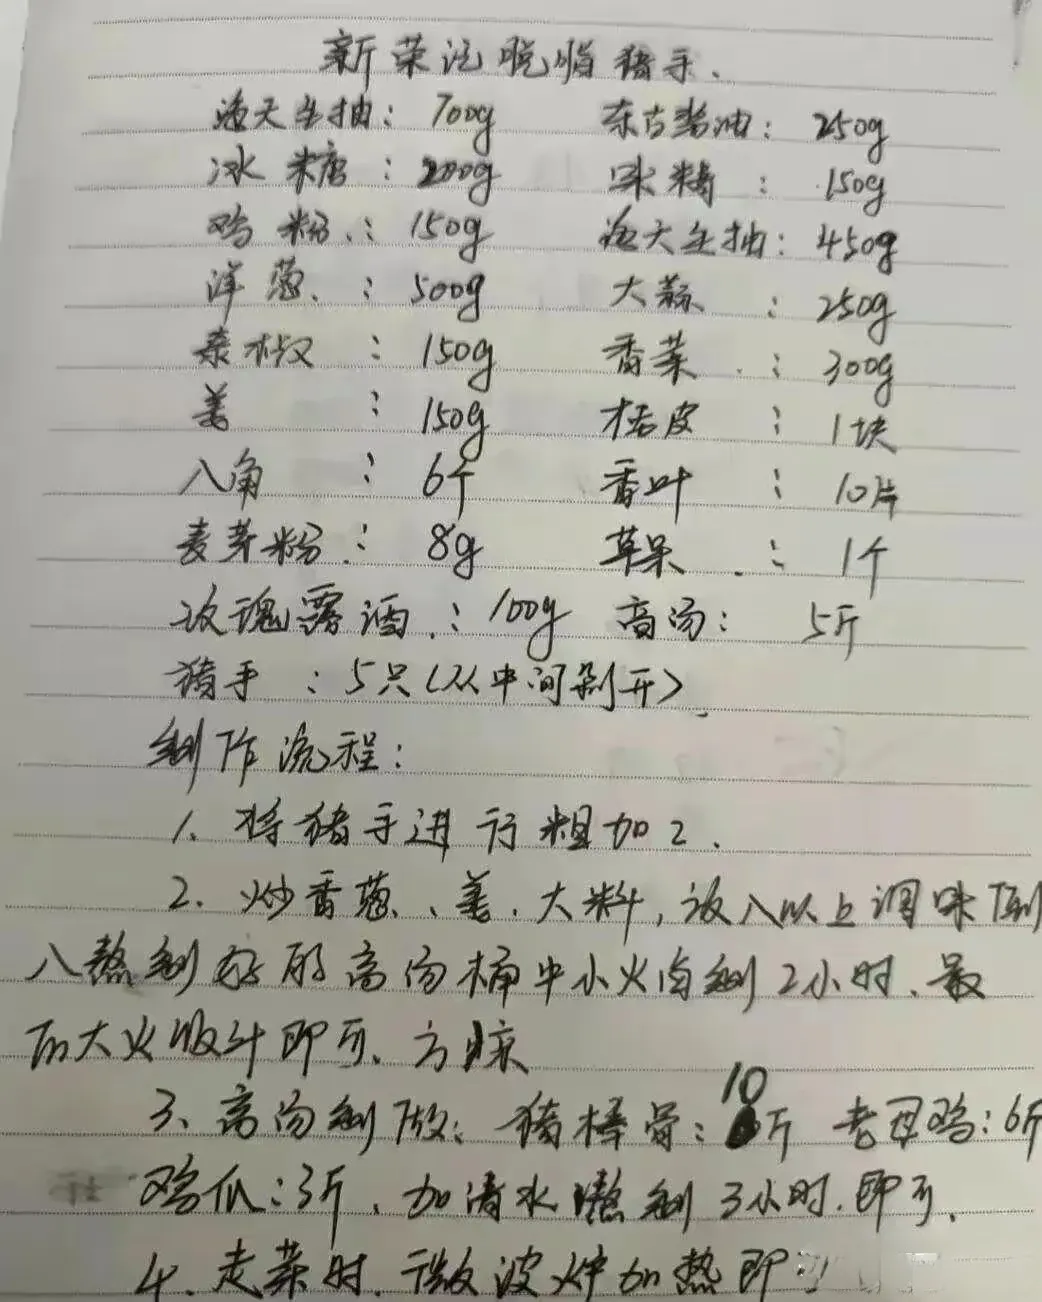 新荣记脱脂猪手.
海天生抽: 700g 东古酱油: 250g
冰糖: 200g 味精: 150g
鸡粉: 150g 海天生抽: 450g
洋葱: 500g 大蒜: 250g
椒: 150g 香菜: 300g
姜: 150g 桔皮: 1块
八角: 6个 香叶: 10片
麦芽粉: 8g 草果: 1个
玫瑰露酒: 100g 高汤: 5斤
猪手: 5只(从中间剁开).
制作流程:
1. 将猪手进行粗加工.
2. 炒香葱、姜、大料,放入以上调味倒
入熬制好的高汤桶中小火卤制2小时.最
后大火收汁即可.
3、高汤制做: 猪棒骨:10斤 老母鸡:6斤
鸡爪:3斤、加清水熬制3小时.即可.
4. 走菜时.微波炉加热即可